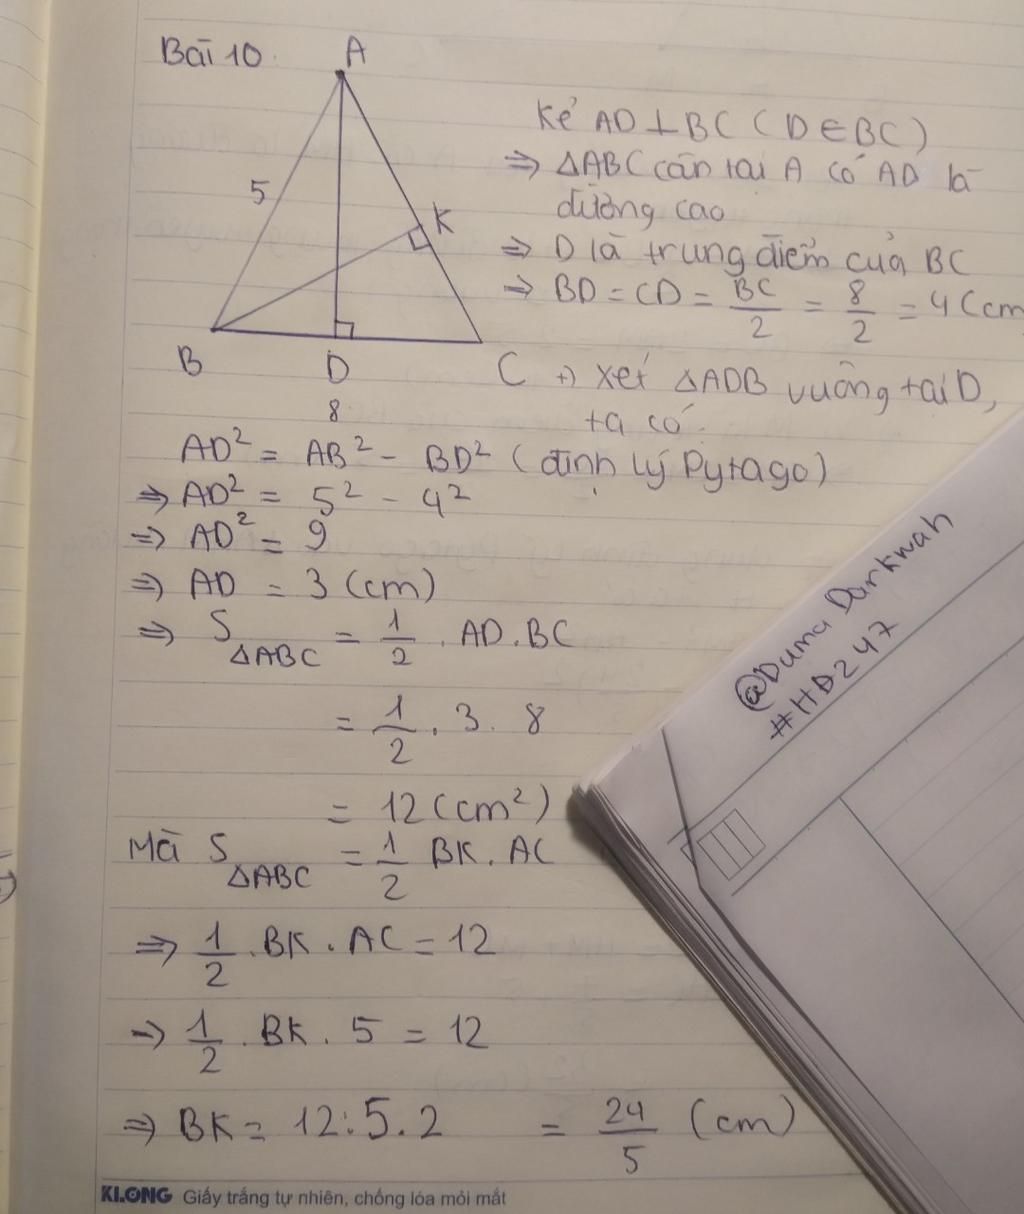 Bài 10.
A
5
K
B
D
C
8
Kẻ AD ⊥ BC ( D ∈ BC )
⇒ ΔABC cân tại A có AD là
đường cao
⇒ D là trung điểm của BC
⇒ BD = CD = BC/2 = 8/2 = 4 (cm
+) Xét ΔADB vuông tại D,
ta có:
AD² = AB² - BD² ( định lý Pytago )
⇒ AD² = 5² - 4²
⇒ AD² = 9
⇒ AD = 3 (cm)
⇒ S ΔABC = 1/2 . AD . BC
= 1/2 . 3 . 8
= 12 (cm²)
Mà S ΔABC = 1/2 BK . AC
⇒ 1/2 . BK . AC = 12
⇒ 1/2 . BK . 5 = 12
⇒ BK = 12 : 5 . 2 = 24/5 (cm)
@Duma Darkwah
#HD247
KLONG Giấy trắng tự nhiên, chống lóa mỏi mắt